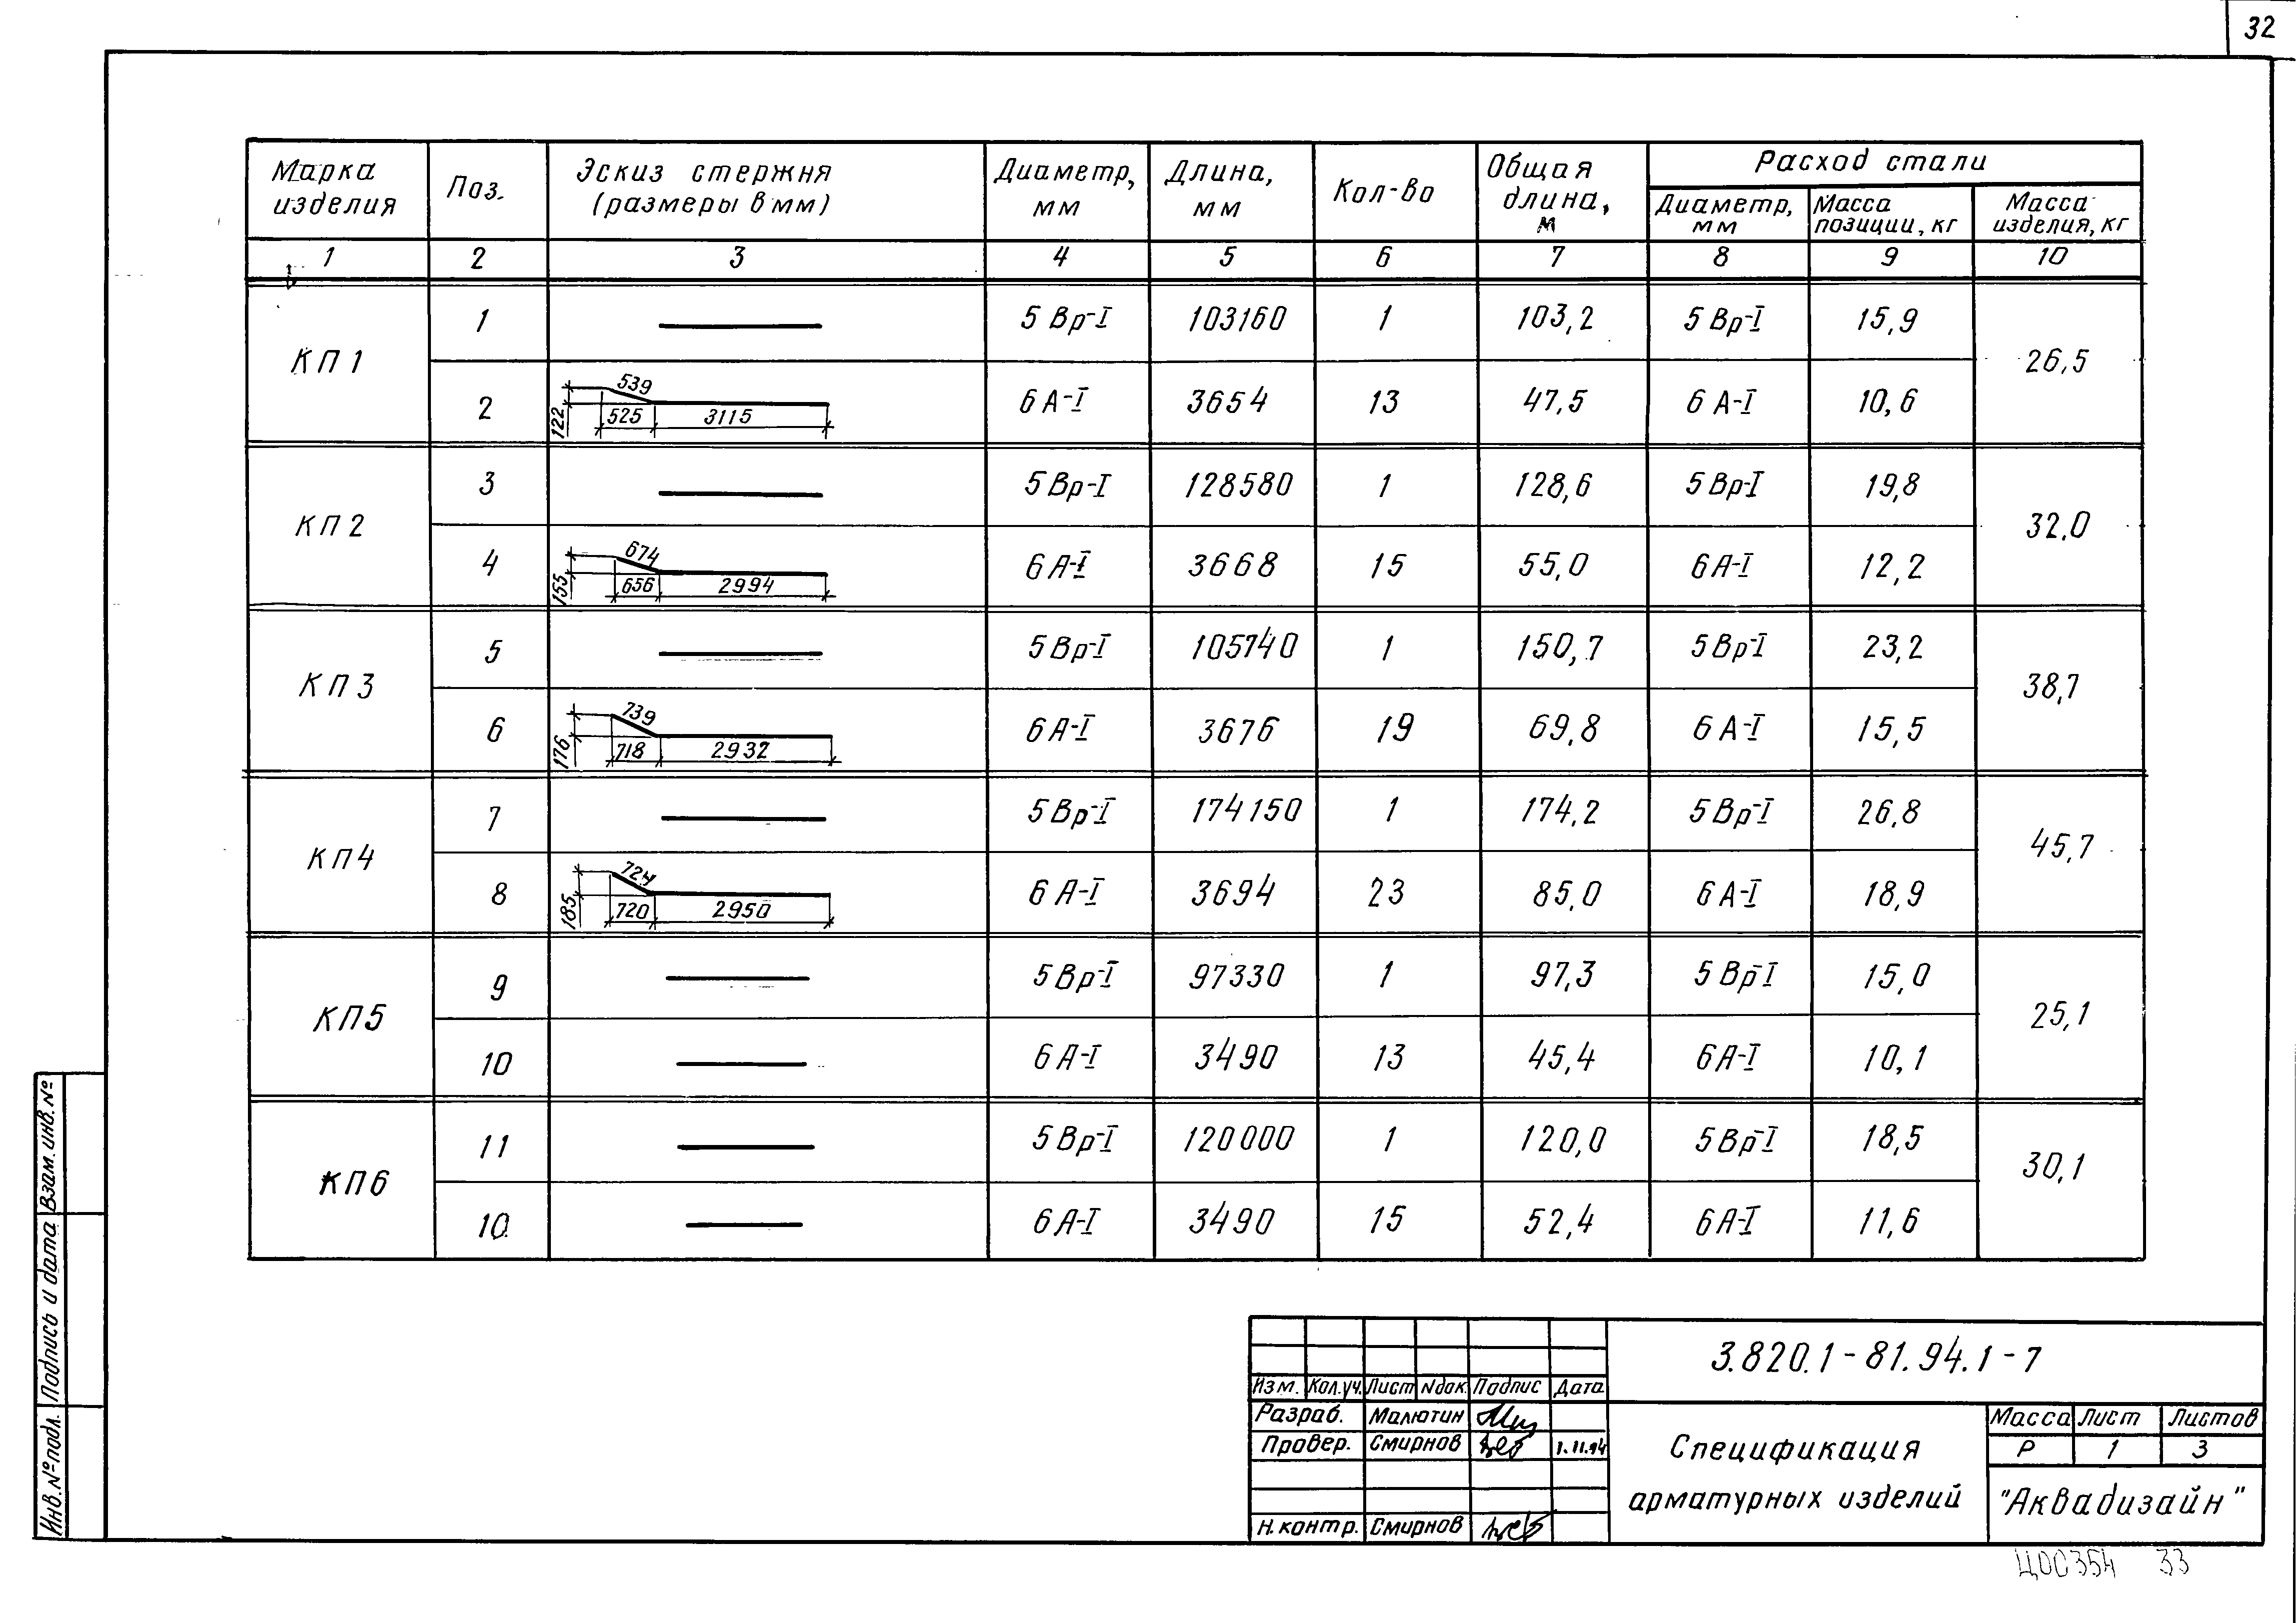 32
Марка изделия | Поз. | Эскиз стержня (размеры в мм) | Диаметр, мм | Длина, мм | Кол-во | Общая длина, м | Расход стали
Диаметр, мм | Масса позиции, кг | Масса изделия, кг
1 | 2 | 3 | 4 | 5 | 6 | 7 | 8 | 9 | 10
КП1 | 1 | 5 Вр-I | 103160 | 1 | 103,2 | 5 Вр-I | 15,9 | 26,5
2 | 122 539 525 3115 | 6 А-I | 3654 | 13 | 47,5 | 6 А-I | 10,6
КП2 | 3 | 5 Вр-I | 128580 | 1 | 128,6 | 5 Вр-I | 19,8 | 32,0
4 | 155 674 656 2994 | 6 А-I | 3668 | 15 | 55,0 | 6 А-I | 12,2
КП3 | 5 | 5 Вр-I | 105740 | 1 | 150,7 | 5 Вр-I | 23,2 | 38,7
6 | 176 739 718 2932 | 6 А-I | 3676 | 19 | 69,8 | 6 А-I | 15,5
КП4 | 7 | 5 Вр-I | 174150 | 1 | 174,2 | 5 Вр-I | 26,8 | 45,7
8 | 185 724 720 2950 | 6 А-I | 3694 | 23 | 85,0 | 6 А-I | 18,9
КП5 | 9 | 5 Вр-I | 97330 | 1 | 97,3 | 5 Вр-I | 15,0 | 25,1
10 | 6 А-I | 3490 | 13 | 45,4 | 6 А-I | 10,1
КП6 | 11 | 5 Вр-I | 120000 | 1 | 120,0 | 5 Вр-I | 18,5 | 30,1
10 | 6 А-I | 3490 | 15 | 52,4 | 6 А-I | 11,6
Инв. № подл. | Подпись и дата | Взам. инв. №
3.820.1-81.94.1-7
Изм. | Кол.уч. | Лист | Nдок. | Подпис | Дата
Разраб. | Малютин
Провер. | Смирнов | 1.11.94
Н.контр. | Смирнов
Спецификация
арматурных изделий
Масса | Лист | Листов
Р | 1 | 3
"Аквадизайн"
Ц00354 33